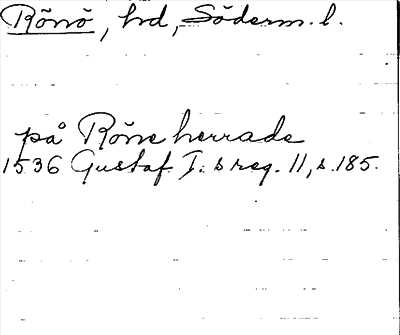 Rönö, hd, Söderm. l.
på Röne herrade
1536 Gustaf I:s reg. 11, s. 185.